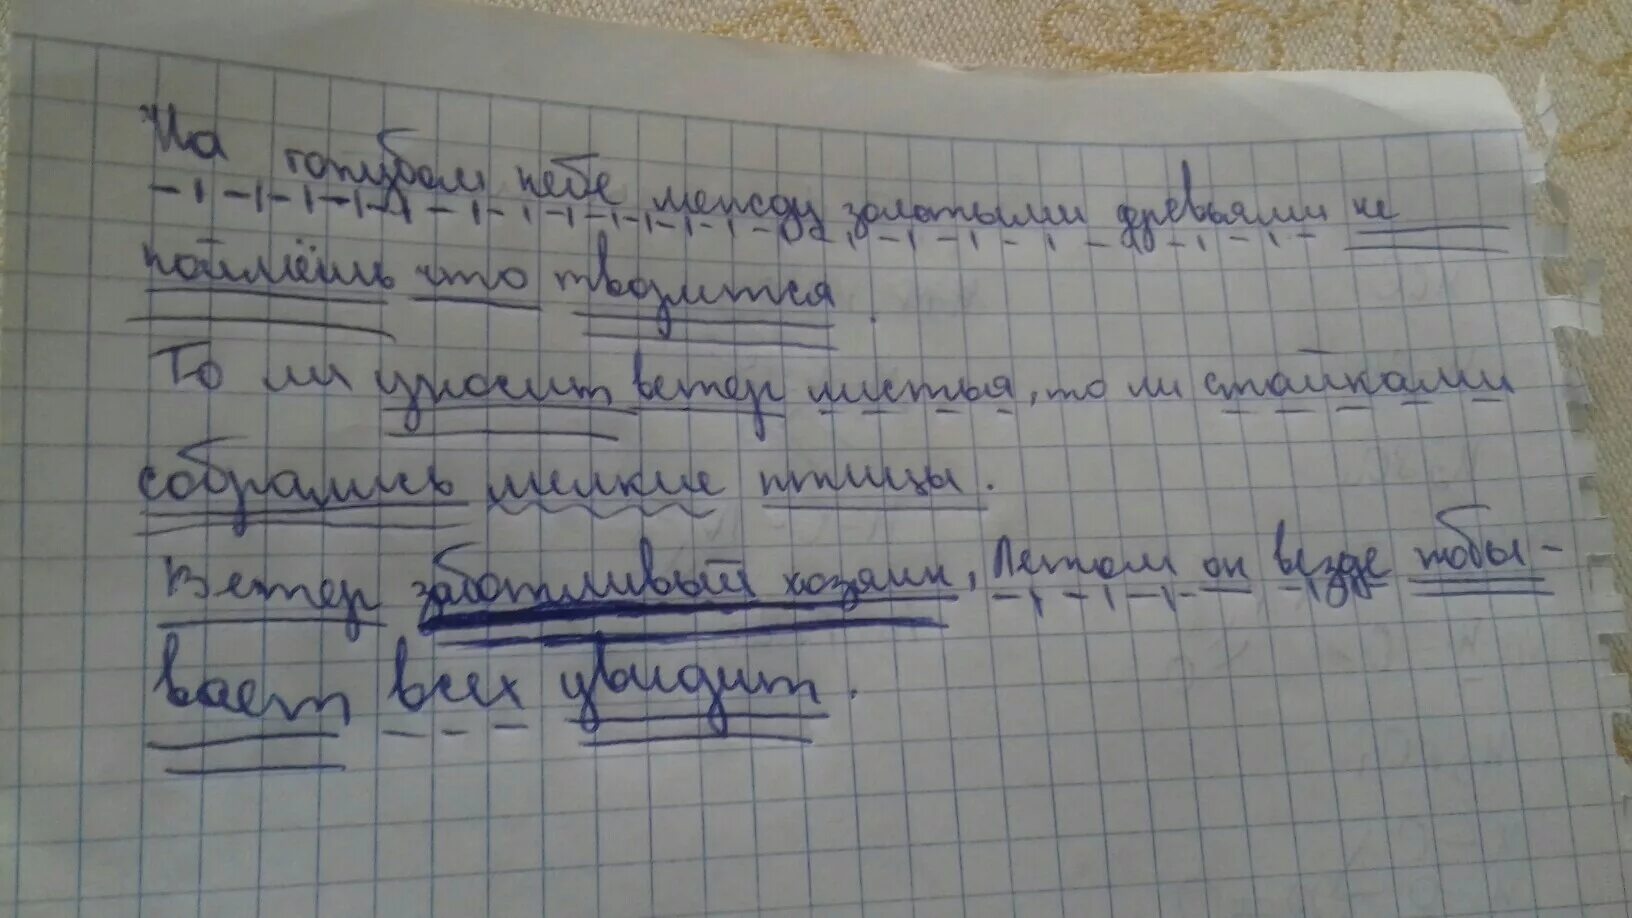 На голубом небе между золотыми деревьями не
поймёшь что творится.
То ли уносит ветер листья, то ли стайками
собрались мелкие птицы.
Ветер заботливый хозяин, Летом он везде побы-
вает всех увидит.